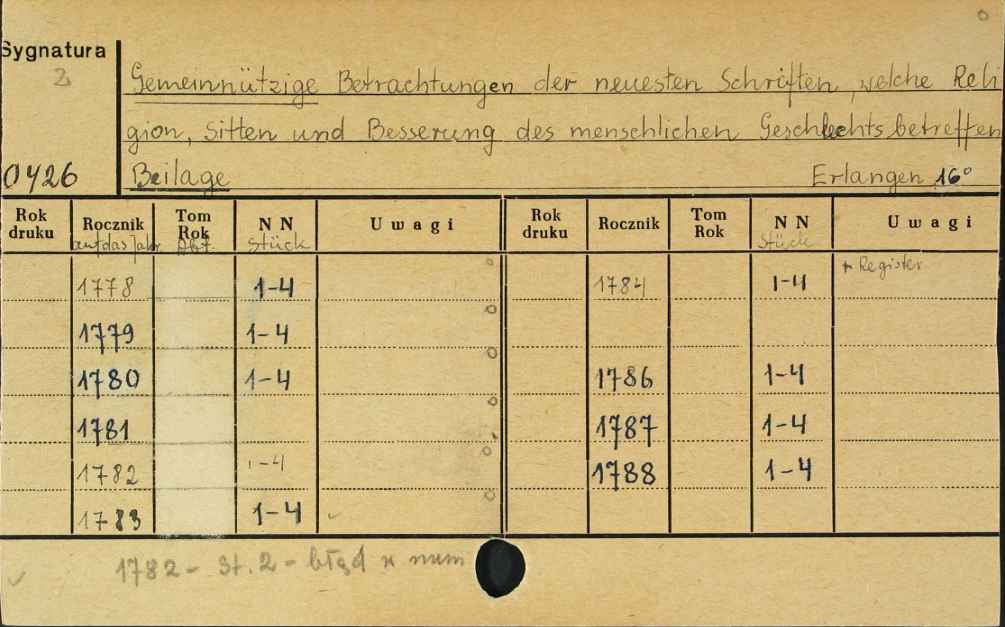 Sygnatura
2
Gemeinnützige Betrachtungen der neuesten Schriften, welche Reli
gion, Sitten und Besserung des menschlichen Geschlechts betreffen
0426 Beilage Erlangen 16°
Rok druku Rocznik Tom Rok N N Uwagi Rok druku Rocznik Tom Rok N N Uwagi
auf das Jahr Abt. Stück Stück
+ Register
1778 1-4 1784 1-4
1779 1-4
1780 1-4 1786 1-4
1781 1787 1-4
1782 1-4 1788 1-4
1783 1-4
1782 - St. 2 - błąd w num